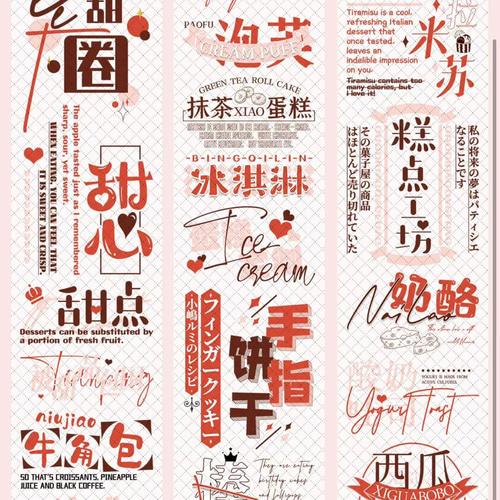 甜
圈
The apple tasted just as I remembered
sharp, sour, yet sweet.
WHEN EATING, YOU CAN FEEL THAT
IT IS SWEET AND CRISP.
甜心
甜点
Desserts can be substituted by
a portion of fresh fruit.
niujiao
牛角包
SO THAT'S CROISSANTS, PINEAPPLE
JUICE AND BLACK COFFEE.
PAOFU
泡芙
CREAM PUFF
GREEN TEA ROLL CAKE
抹茶XIAO蛋糕
B-I-N-G-Q-I-L-I-N
冰淇淋
Ice
cream
フィンガークッキー
小嶋ルミのレシピ
手指
饼干
They are eating
birthday cakes
and lollipops
Tiramisu is a cool,
refreshing Italian
dessert that
once tasted,
leaves an
indelible impression
on you.
Tiramisu contains too
many calories, but
I love it!
米
苏
糕点工坊
私の将来の夢はパティシエ
なることです
その菓子屋の商品
はほとんど売り切れていた
奶酪
NaiLao
酸奶
YOGURT IS MADE FROM
ACTIVE CULTURES.
Yogurt Tast
西瓜
XIGUABOBO